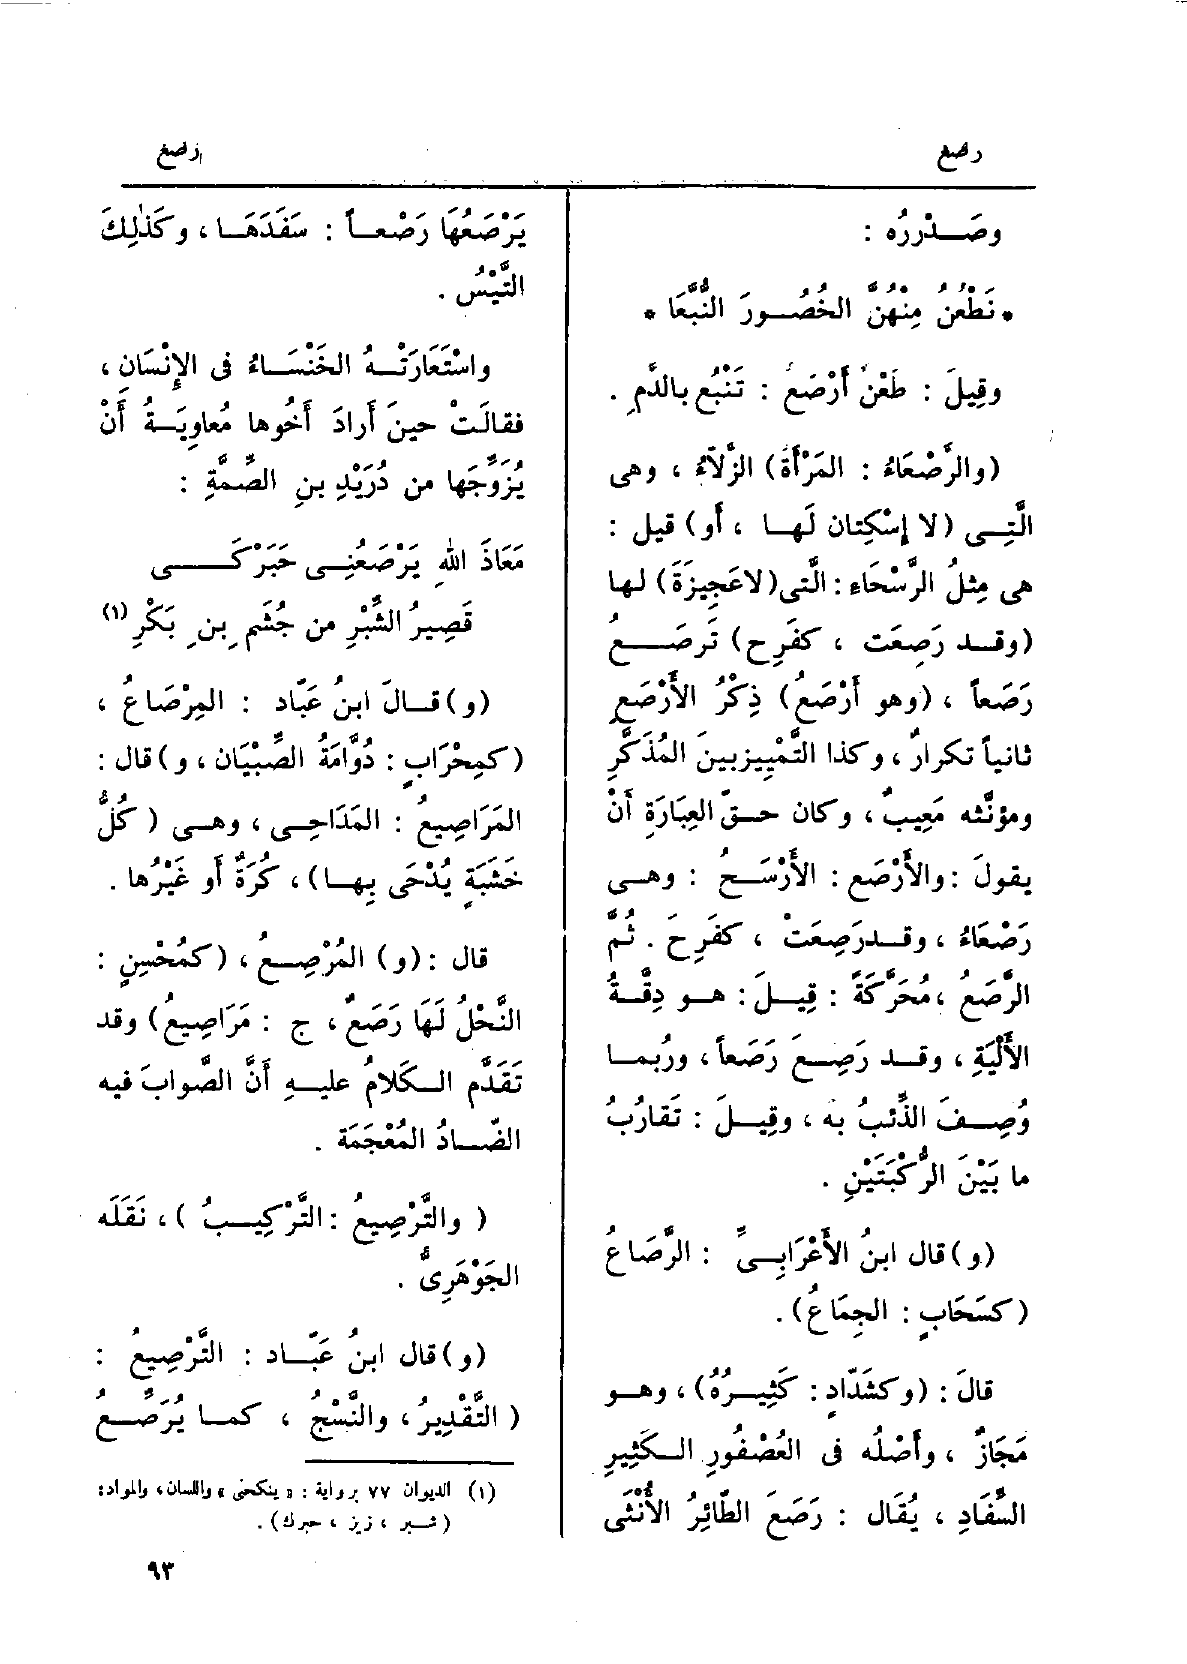 رصع
رصع
وصَـــدْرُه :
* نَطْعُنُ مِنْهُنَّ الخُصُــورَ النُّبَّعَا *
وقِيلَ : طَعْنٌ أَرْصَعُ : تَنْبُع بالدَّمِ .
(والرَّصْعَاءُ : المَرْأَةُ) الزَّلَّاءُ ، وهى
الَّتِــى (لا إِسْكِتَان لَهــا ، أَو) قيل :
هى مِثلُ الرَّسْحَاءِ : الَّتى (لاعَجِيزَةَ) لها
(وقــد رَصِعَت ، كفَرِح) تَرصَــــعُ
رَصَعاً ، (وهو أَرْصَعُ) ذِكْرُ الأَرْصَعِ
ثانياً تكرارٌ ، وكذا التَّمْيِيزبينَ المُذَكَّرِ
ومؤنَّثه مَعِيبٌ ، وكان حــقّ العِبَارَةِ أَنْ
يقولَ : والأَرْصَع : الأَرْسَــحُ : وهــى
رَصْعَاءُ ، وقــدرَصِعَتْ ، كفَرِحَ . ثُمَّ
الرَّصَعُ ، مُحَرَّكَةً : قِيــلَ : هــو دِقَّــةُ
الأَلْيَةِ ، وقــد رَصِــعَ رَصَعاً ، ورُبمــا
وُصِــفَ الذِّئبُ به ، وقِيــلَ : تَقارُبُ
ما بَيْنَ الرُّكْبَتَيْنِ .
(و) قال ابنُ الأَعْرَابِــىِّ : الرَّصَاعُ
(كسَحَابٍ : الجِمَاعُ) .
قالَ : (وكشَدّادٍ : كَثِيــرُهُ) ، وهــو
مَجَازٌ ، وأَصْلُه فى العُصْفُورِ الــكَثِيرِ
السِّفَادِ ، يُقَال : رَصَعَ الطَّائِرُ الأُنْثَى
يَرْصَعُهَا رَصْعــاً : سَفَدَهَــا ، وكَذٰلِكَ
التَّيْسُ .
واسْتَعَارَتْــهُ الخَنْسَــاءُ فى الإِنْسَانِ ،
فقالَتْ حينَ أَرادَ أَخُوها مُعاوِيَــةُ أَنْ
يُزَوِّجَها من دُرَيْدِ بنِ الصِّمَّةِ :
مَعَاذَ اللهِ يَرْصَعُنِــى حَبَرْكَــــى
قَصِيرُ الشِّبْرِ من جُشَمِ بنِ بَكْرِ (١)
(و) قــالَ ابنُ عَبّاد : المِرْصَاعُ ،
(كمِحْرَابٍ : دُوَّامَةُ الصِّبْيَان ، و) قال :
المَرَاصِيعُ : المَدَاحِــى ، وهــى (كُلُّ
خَشَبَةٍ يُدْحَى بِهــا) ، كُرَةٌ أَو غَيْرُها .
قال : (و) المُرْصِــعُ ، (كمُحْسِنٍ :
النَّخْلُ لَهَا رَصَعٌ ، ج : مَرَاصِيعُ) وقد
تَقَدَّم الــكَلامُ عليــهِ أَنَّ الصَّوابَ فيه
الضّــادُ المُعْجَمَة .
( والتَّرْصِيعُ : التَّرْكِيــبُ ) ، نَقَلَه
الجَوْهَرِىُّ .
(و) قال ابنُ عَبّــاد : التَّرْصِيعُ :
( التَّقْدِيرُ ، والنَّسْجُ ، كمــا يُرَصِّــعُ
(١) الديوان ٧٧ برواية : « ينكحنى » واللسان ، والمواد :
( شــبر ، زيز ، حبرك ) .
٩٣